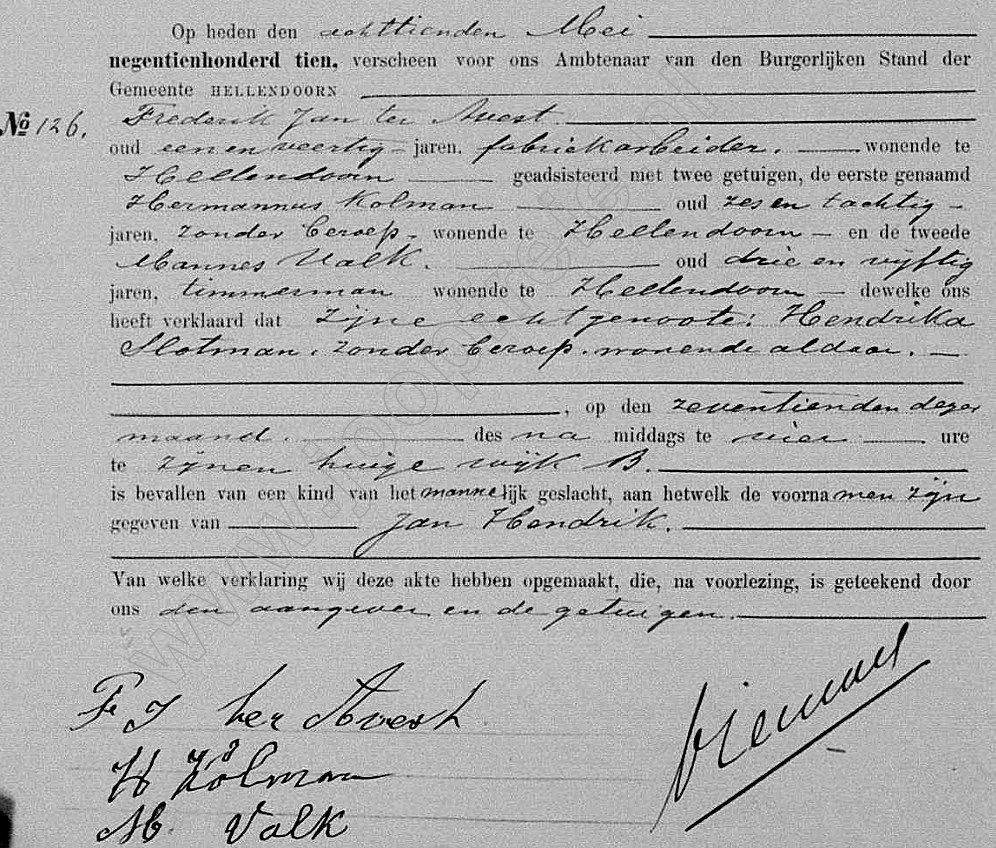 Op heden den achttienden Mei
negentienhonderd tien, verscheen voor ons Ambtenaar van den Burgerlijken Stand der
Gemeente HELLENDOORN
No 126. Frederik Jan ter Avest
oud een en veertig jaren, fabriekarbeider. wonende te
Hellendoorn geadsisteerd met twee getuigen, de eerste genaamd
Hermannus Kolman oud zes en tachtig
jaren, zonder beroep, wonende te Hellendoorn en de tweede
Mannes Valk. oud drie en vijftig
jaren, timmerman wonende te Hellendoorn dewelke ons
heeft verklaard dat zijne echtgenoote: Hendrika
Slotman, zonder beroep, wonende aldaar.
, op den zeventienden dezer
maand. des na middags te vier ure
te zijnen huize wijk B.
is bevallen van een kind van het mannelijk geslacht, aan hetwelk de voornamen zijn
gegeven van Jan Hendrik.
Van welke verklaring wij deze akte hebben opgemaakt, die, na voorlezing, is geteekend door
ons den aangever en de getuigen.
F J ter Avest
H Kolman
M. Valk